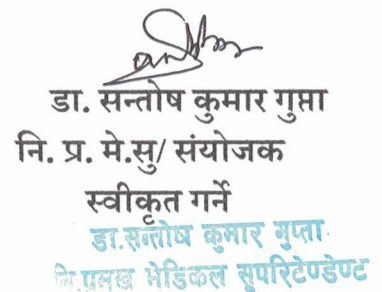 डा. सन्तोष कुमार गुप्ता
नि. प्र. मे.सु/ संयोजक
स्वीकृत गर्ने
डा.सन्तोष कुमार गुप्ता
नि.प्रमुख मेडिकल सुपरिटेण्डेण्ट